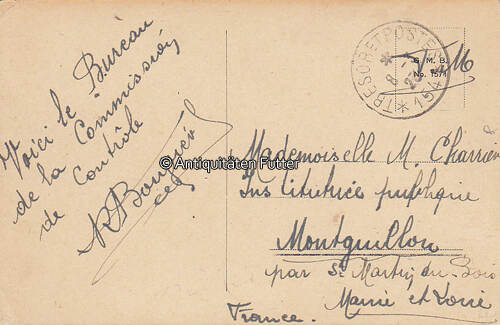 Voici le Bureau
de la Commission
de Contrôle
TRESOR ET POSTES * 154 *
8
G. M. B.
No. 1571
F. M
© Antiquitäten Futter
Mademoiselle M. Charrier
Institutrice publique
Montguillon
par St Martin du Bois
Maine et Loire
France.